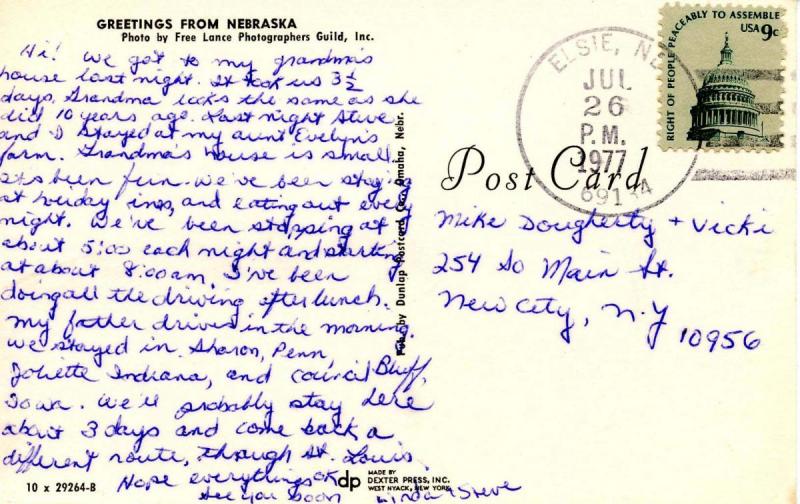 GREETINGS FROM NEBRASKA
Photo by Free Lance Photographers Guild, Inc.
Hi! We got to my grandma's
house last night. It took us 3½
days. Grandma looks the same as she
did 10 years ago. Last night Steve
and I stayed at my aunt Evelyn's
farm. Grandma's house is small.
Its been fun. We've been staying
at holiday inns, and eating out every
night. We've been stopping at
about 5:00 each night and starting
at about 8:00 am. I've been
doing all the driving after lunch.
My father drives in the morning.
We stayed in Sharon, Penn,
Joliette Indiana, and Council Bluff,
Iowa. We'll probably stay here
about 3 days and come back a
different route, through St. Louis.
Hope everythings OK
See you soon
Linda & Steve
10 x 29264-B
dp
MADE BY
DEXTER PRESS, INC.
WEST NYACK, NEW YORK
Pub. by Dunlap Postcard Co., Omaha, Nebr.
Post Card
ELSIE, NE
JUL
26
P.M.
1977
RIGHT OF PEOPLE PEACEABLY TO ASSEMBLE
USA 9c
Mike Dougherty + Vicki
254 So Main St.
New City, N.Y
10956